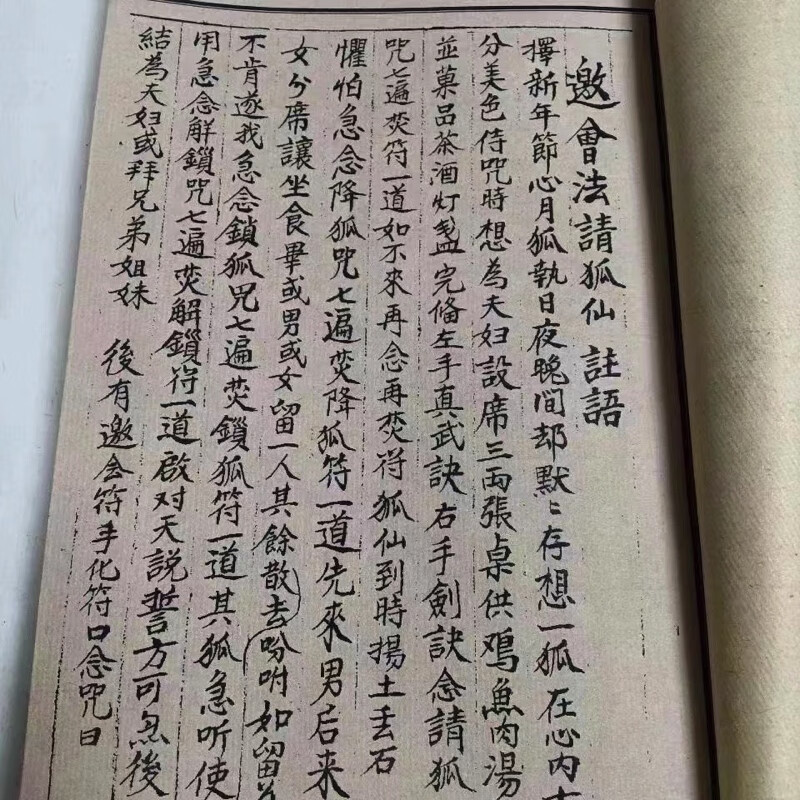 邀會法請狐仙 註語
擇新年節心月狐執日夜晚间却默〻存想一狐在心内十
分美色侍咒時想為夫妇設席三両張桌供鸡魚肉湯
並菓品茶酒灯盏完俻左手真武訣右手劍訣念請狐
咒七遍焚符一道如不來再念再焚符狐仙到時揚土丢石
懼怕急念降狐咒七遍焚降狐符一道先來男后来
女分席讓坐食畢或男或女留一人其餘散去吩咐如留
不肯遂我急念鎖狐咒七遍焚鎖狐符一道其狐急听使
用急念解鎖咒七遍焚解鎖符一道啟对天説誓方可然後
結為夫妇或拜兄弟姐妹 後有邀会符手化符口念咒曰